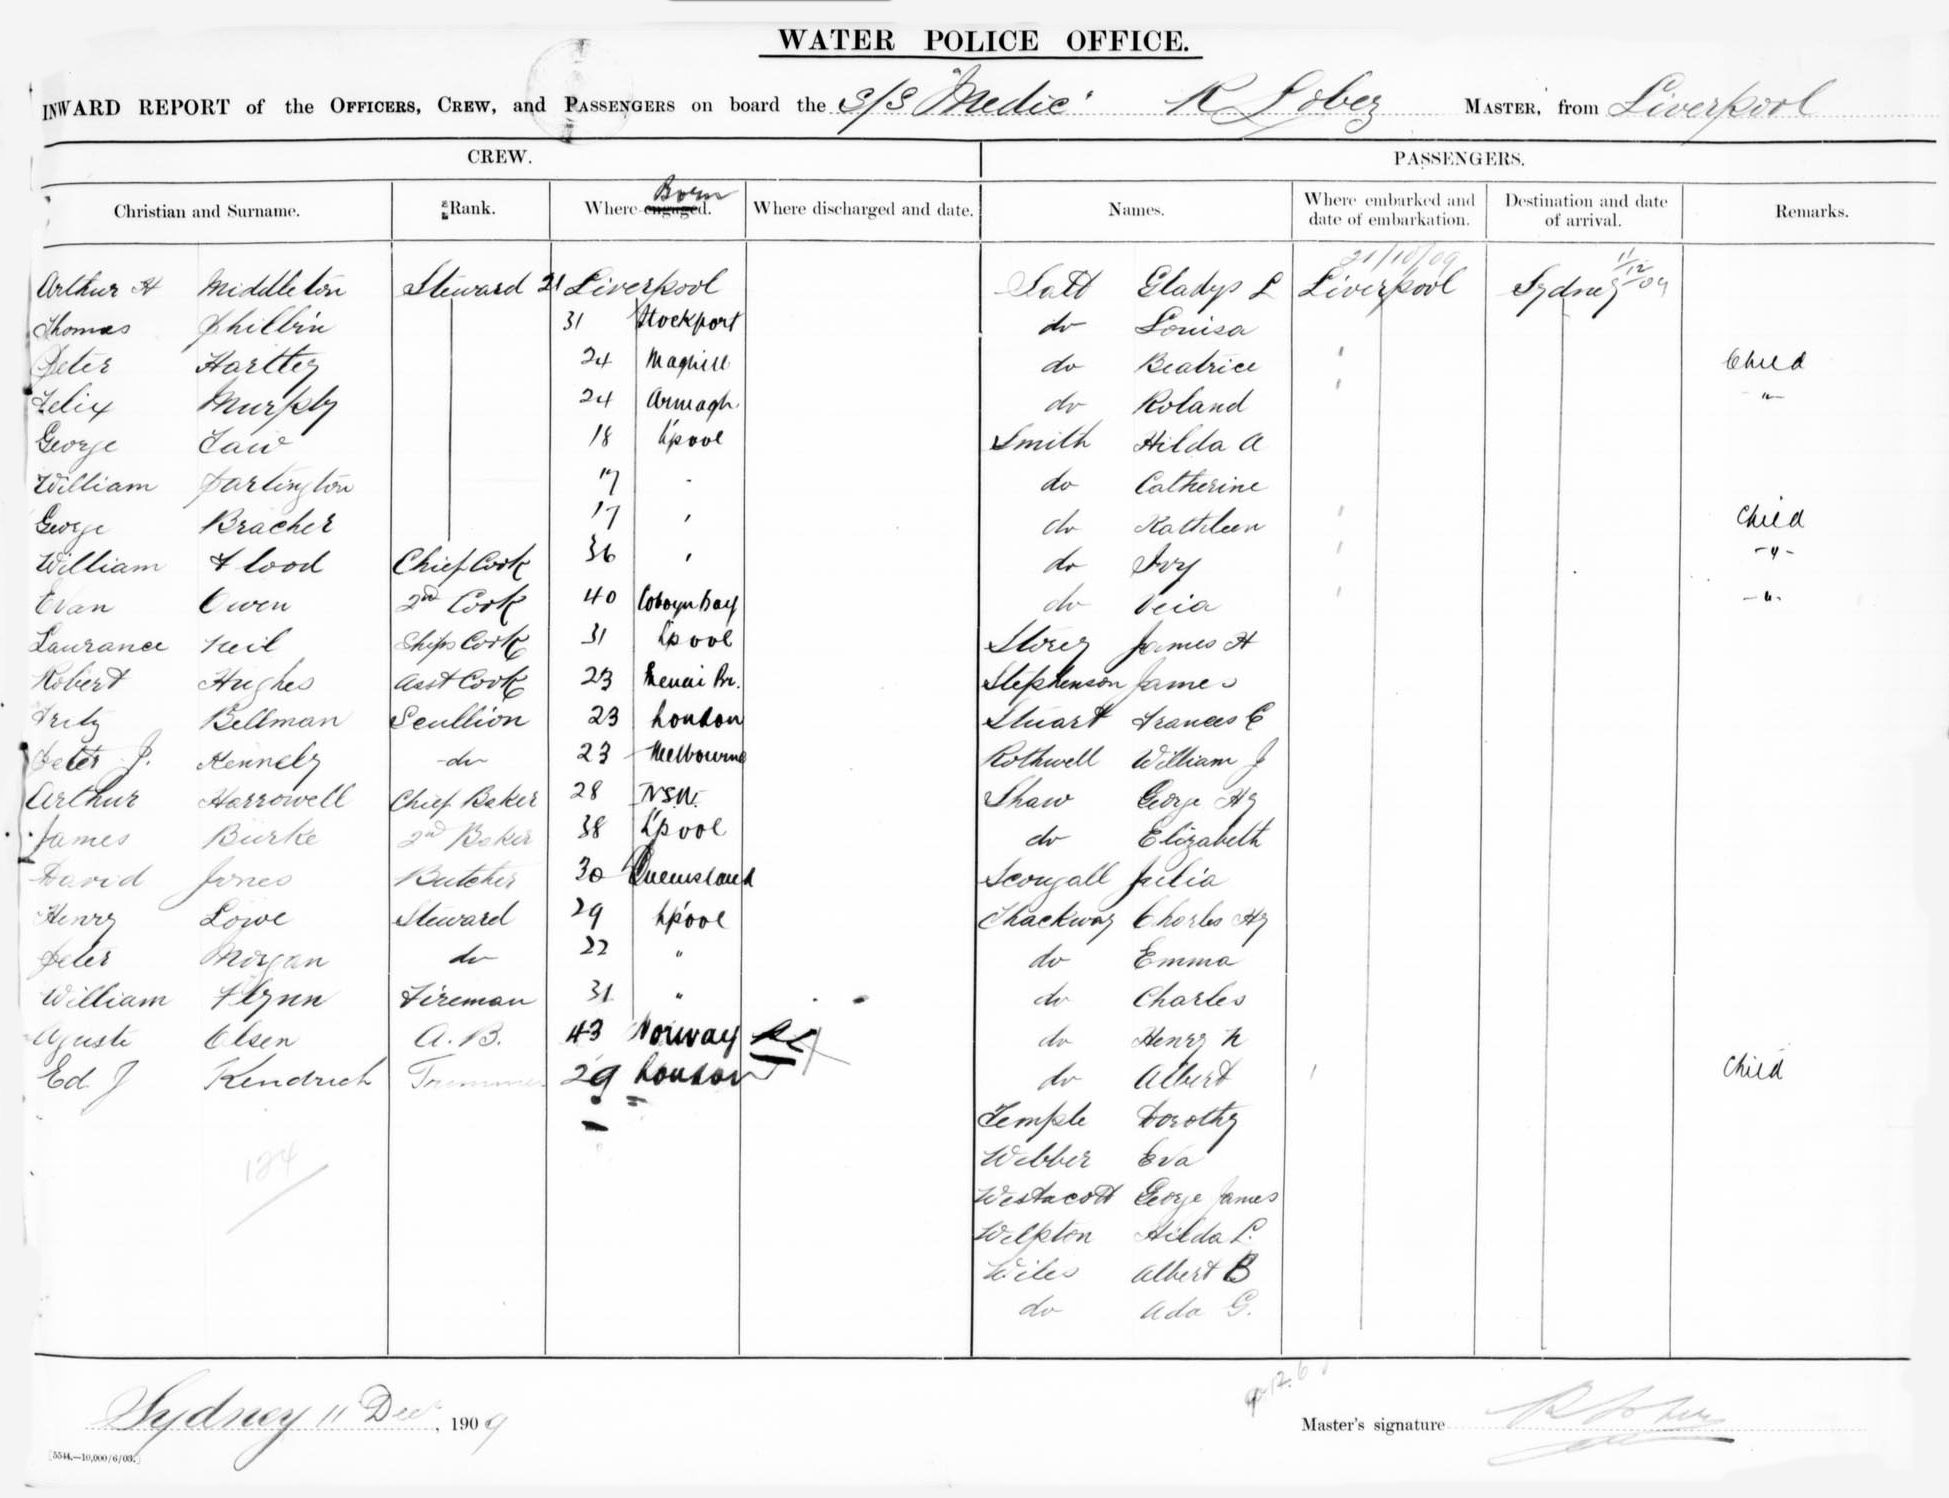 WATER POLICE OFFICE.
INWARD REPORT of the OFFICERS, CREW, and PASSENGERS on board the S/S "Medic" R Lobez MASTER, from Liverpool
CREW.
Christian and Surname. Rank. Where engaged. Born Where discharged and date.
Arthur H Middleton Steward 21 Liverpool
Thomas Philbin 31 Stockport
Peter Hartley 24 Maghill
Felix Murphy 24 Armagh.
George Law 18 L'pool
William Partington 17 "
George Bracher 17 "
William Flood Chief Cook 36 "
Evan Owen 2nd Cook 40 Colwyn Bay
Laurance Neil Ships Cook 31 L'pool
Robert Hughes Asst Cook 23 Menai Br.
Fritz Bellman Scullion 23 London
Peter J. Kennely -do- 23 Melbourne
Arthur Harrowell Chief Baker 28 N.S.W.
James Burke 2nd Baker 38 L'pool
David Jones Butcher 30 Queensland
Henry Lowe Steward 29 L'pool
Peter Morgan do 22 "
William Flynn Fireman 31 "
Aguste Olsen A.B. 43 Norway
Ed J Kendrick Trimmer 29 London
124
PASSENGERS.
Names. Where embarked and date of embarkation. Destination and date of arrival. Remarks.
21/10/09 11/12/09
Satt Gladys L Liverpool Sydney
do Louisa
do Beatrice " Child
do Roland " -"-
Smith Hilda A
do Catherine
do Kathleen " Child
do Ivy " -"-
do Veia " -"-
Storey James H
Stephenson James
Stuart Frances E
Rothwell William J
Shaw George Hy
do Elizabeth
Scougall Julia
Thackway Charles Hy
do Emma
do Charles
do Henry N
do Albert " Child
Temple Dorothy
Webber Eva
Westacott George James
Welpton Hilda L.
Wiles Albert B
do Ada G.
Sydney 11 Decr, 1909
Master's signature
[5544.—10,000/6/03.]